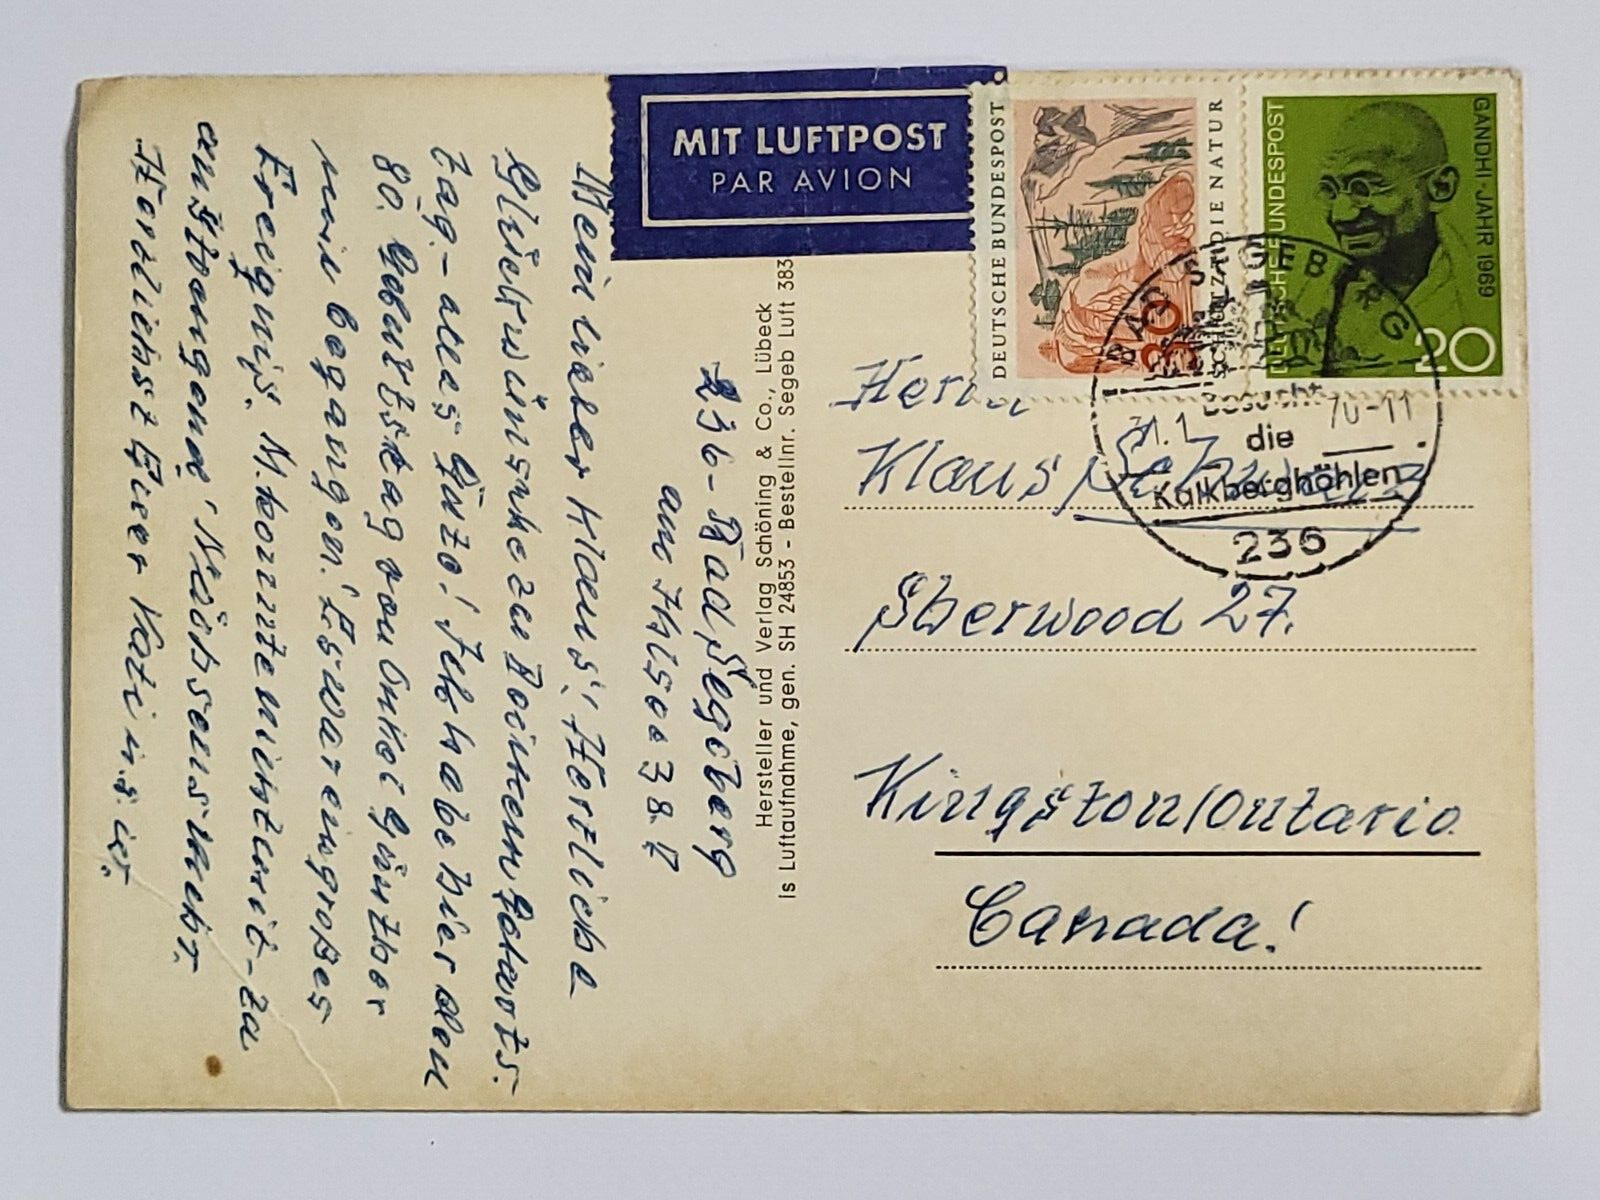 MIT LUFTPOST
PAR AVION
DEUTSCHE BUNDESPOST
SCHÜTZT DIE NATUR
30
DEUTSCHE BUNDESPOST
GANDHI-JAHR 1969
20
BAD SEGEBERG
Besucht
die
Kalkberghöhlen
236
70-11
236-Bad Segeberg
am
Mein lieber Klaus! Herzliche
Glückwünsche zu Deinem Geburts-
tag - alles Gute! Ich habe hier den
80. Geburtstag von Onkel Günther
mit begangen! Es war ein großes
Ereignis. M. konnte nicht mit - zu
anstrengend! Nächstens mehr.
Herzlichst Euer Vati
Hersteller und Verlag Schöning & Co., Lübeck
Is Luftaufnahme, gen. SH 24853 - Bestellnr. Segeb Luft 383
Herrn
Klaus
Sherwood 27.
Kingston/Ontario
Canada!